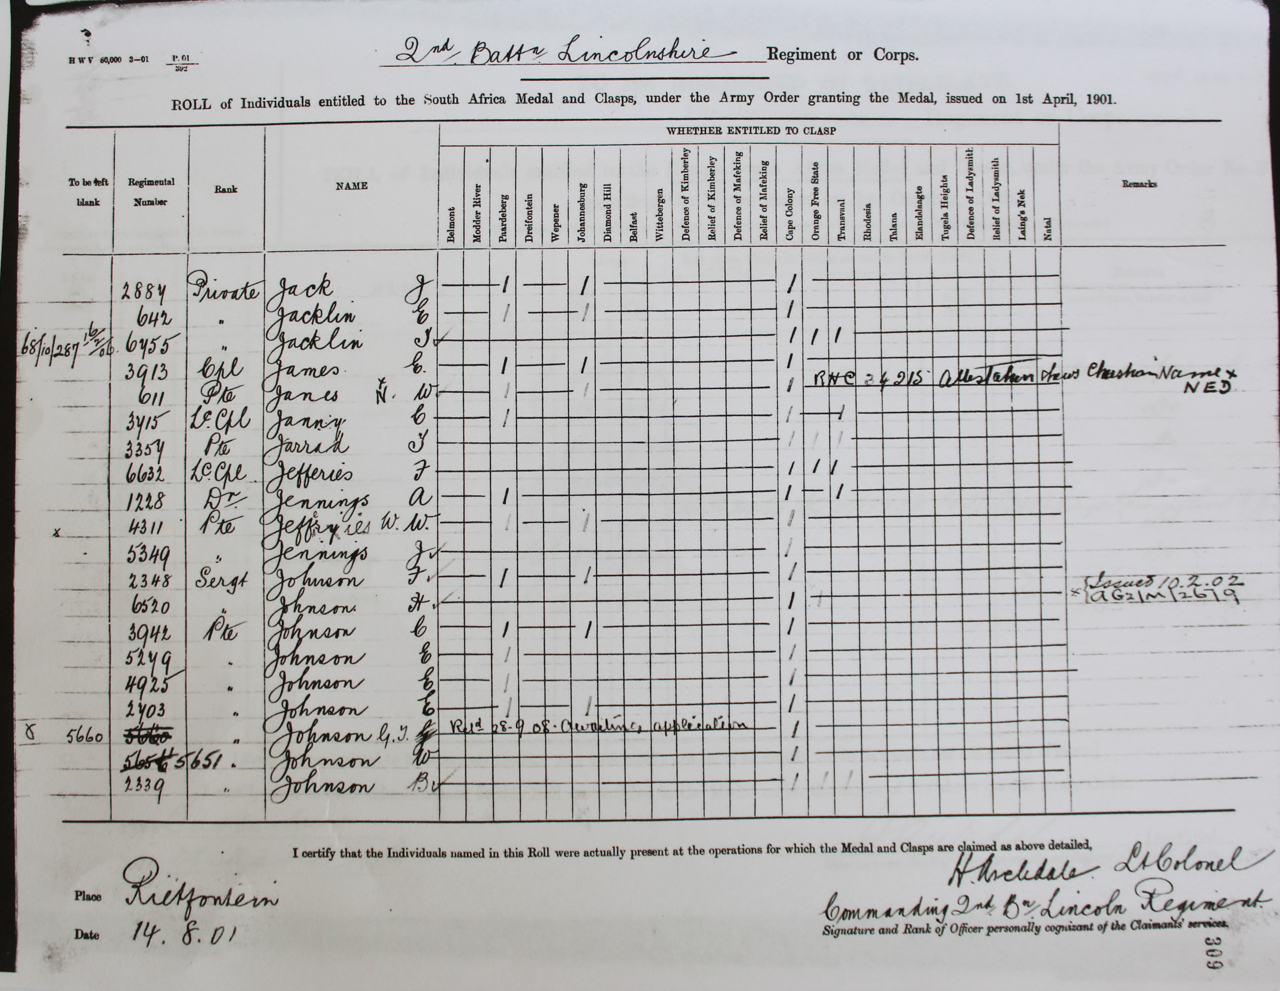 2nd Battn Lincolnshire Regiment or Corps.
H W V 60,000 3—01 P. 01
ROLL of Individuals entitled to the South Africa Medal and Clasps, under the Army Order granting the Medal, issued on 1st April, 1901.
WHETHER ENTITLED TO CLASP
To be left blank Regimental Number Rank NAME Belmont Modder River Paardeberg Dreifontein Wepener Johannesburg Diamond Hill Belfast Wittebergen Defence of Kimberley Relief of Kimberley Defence of Mafeking Relief of Mafeking Cape Colony Orange Free State Transvaal Rhodesia Talana Elandslaagte Tugela Heights Defence of Ladysmith Relief of Ladysmith Laing's Nek Natal Remarks
2884 Private Jack J
642 " Jacklin E
68/10/287 16/2/06 6455 " Jacklin J
3913 Cpl James C.
611 Pte Janes N. W. RHC 34215 Attestation shews Christian Name x NED
3415 Lc. Cpl Janny C
3354 Pte Jarrad J
6632 Lc. Cpl. Jefferies F
1228 Dr Jennings A
x 4311 Pte W. W.
5349 " Jennings J
2348 Sergt Johnson F. Issued 10.2.02
6520 " Johnson H x AG2/M/2619
3942 Pte Johnson C
5249 " Johnson E
4925 " Johnson E
2403 " Johnson E
8 5660 5660 " Johnson G. J. Retd 28-9-08. Awaiting application
5651 " Johnson W
2339 " Johnson B
I certify that the Individuals named in this Roll were actually present at the operations for which the Medal and Clasps are claimed as above detailed,
H. Archdale. Lt Colonel
Place Rietfontein
Commanding 2nd Bn Lincoln Regiment.
Date 14. 8. 01
Signature and Rank of Officer personally cognizant of the Claimants' services.
309